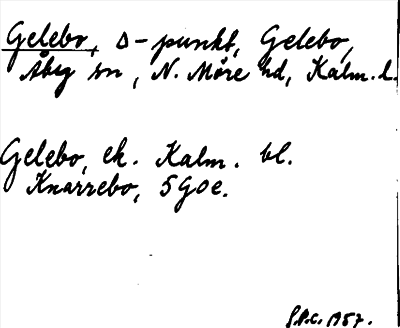 Gelebo, Δ-punkt, Gelebo,
Åby sn, N. Möre hd, Kalm. l.
Gelebo, ek. Kalm. bl.
Knarrebo, 5g0e.
S.P.C. 1957.